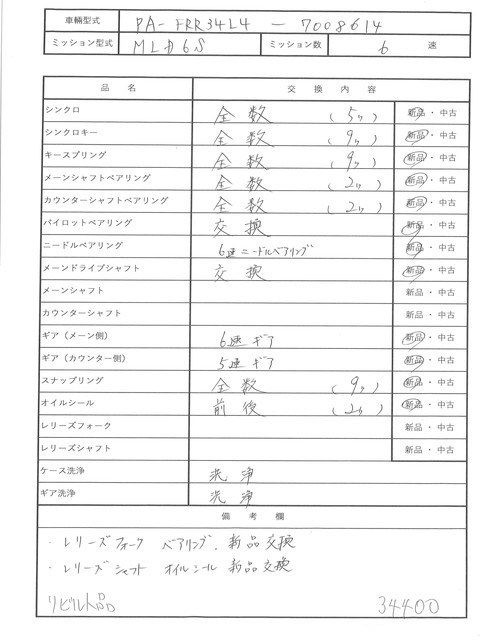 車輌型式 PA-FRR34L4-7008614
ミッション型式 MLD6S ミッション数 6 速
品名 交換内容
シンクロ 全数 (5ヶ) 新品・中古
シンクロキー 全数 (9ヶ) 新品・中古
キースプリング 全数 (9ヶ) 新品・中古
メーンシャフトベアリング 全数 (2ヶ) 新品・中古
カウンターシャフトベアリング 全数 (2ヶ) 新品・中古
パイロットベアリング 交換 新品・中古
ニードルベアリング 6速ニードルベアリング 新品・中古
メーンドライブシャフト 交換 新品・中古
メーンシャフト 新品・中古
カウンターシャフト 新品・中古
ギア(メーン側) 6速ギア 新品・中古
ギア(カウンター側) 5速ギア 新品・中古
スナップリング 全数 (9ヶ) 新品・中古
オイルシール 前後 (2ヶ) 新品・中古
レリーズフォーク 新品・中古
レリーズシャフト 新品・中古
ケース洗浄 洗浄
ギア洗浄 洗浄
備考欄
・レリーズフォーク ベアリング、新品交換
・レリーズシャフト オイルシール 新品交換
リビルト品 34400